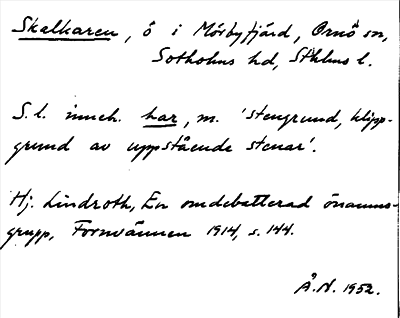 Skalkaren, ö i Mörbyfjärd, Ornö sn,
Sotholms hd, Sthlms l.
S. l. inneh. har, m. 'stengrund, klipp-
grund av uppstående stenar'.
Hj. Lindroth, En omdebatterad önamns-
grupp, Fornvännen 1914, s. 144.
Å.N. 1952.